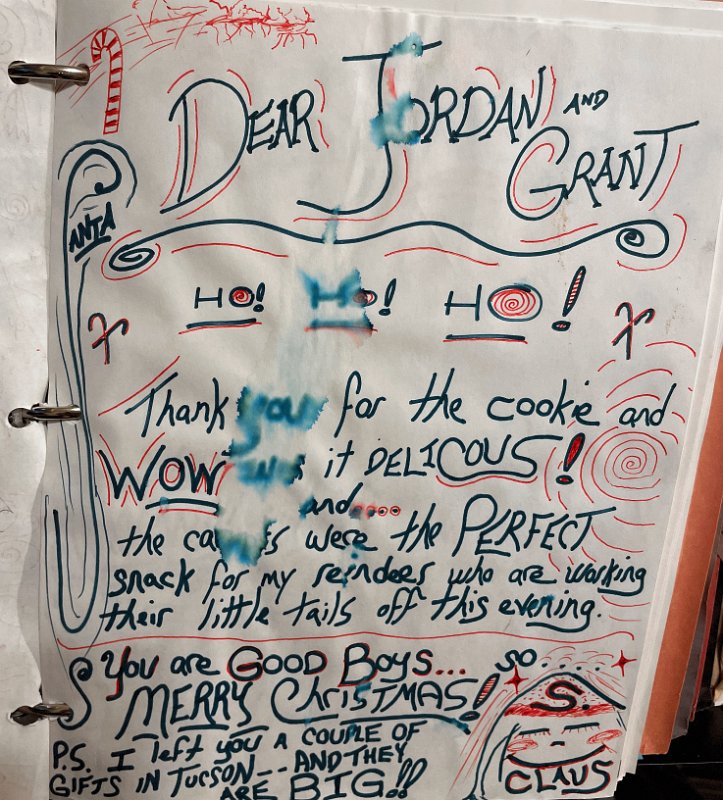 DEAR JORDAN AND
GRANT
SANTA
HO! HO! HO!
Thank you for the cookie and
WOW was it DELICOUS!
and....
the carrots were the PERFECT
snack for my reindeer who are working
their little tails off this evening.
You are GOOD BOYS... so....
MERRY ChrisTMAS!
P.S. I left you A COUPLE OF
GIFTS IN TUCSON -- AND THEY
ARE BIG!!
S.
CLAUS